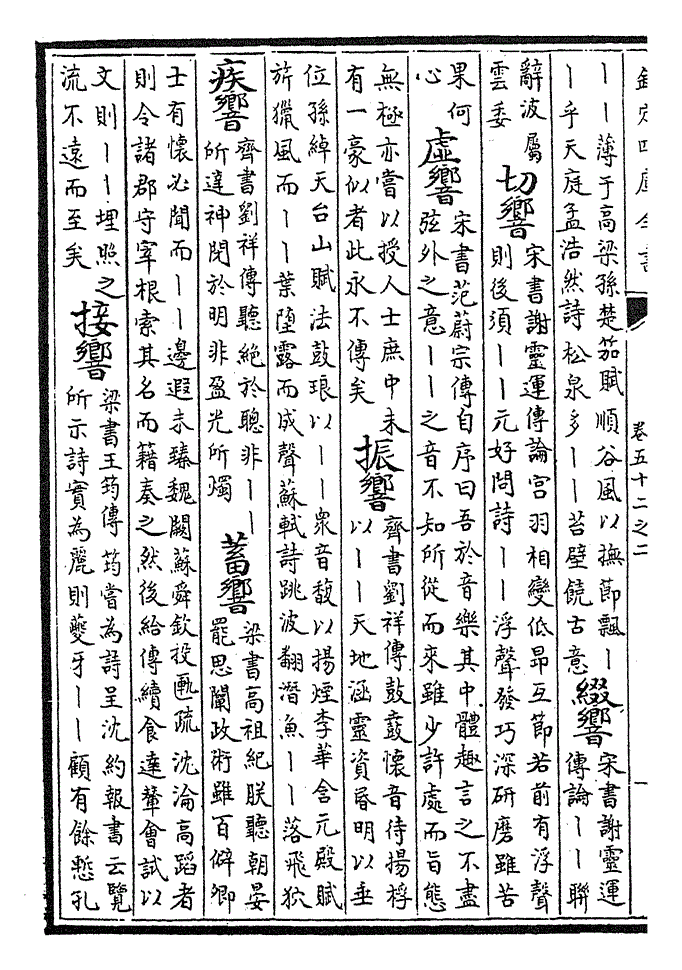 欽定四庫全書
卷五十二之二
一
丨丨薄于高梁孫楚笳賦順谷風以撫節飄丨
丨乎天庭孟浩然詩松泉多丨丨苔壁饒古意
綴響
宋書謝靈運
傳論丨丨聯
辭波屬
雲委
切響
宋書謝靈運傳論宫羽相變低昂互節若前有浮聲
則後須丨丨元好問詩丨丨浮聲發巧深研磨雖苦
果何
心
虛響
宋書范蔚宗傳自序曰吾於音樂其中體趣言之不盡
弦外之意丨丨之音不知所從而來雖少許處而旨態
無極亦嘗以授人士庶中未
有一豪似者此永不傳矣
振響
齊書劉祥傳鼓鼗懷音待揚桴
以丨丨天地涵靈資昏明以垂
位孫綽天台山賦法鼓琅以丨丨衆音馥以揚煙李華含元殿賦
旂獵風而丨丨葉墮露而成聲蘇軾詩跳波翻潛魚丨丨落飛狖
疾響
齊書劉祥傳聽絶於聰非丨丨
所達神閉於明非盈光所燭
蓄響
梁書高祖紀朕聽朝晏
罷思闡政術雖百僻卿
士有懷必聞而丨丨邊遐未臻魏闕蘇舜欽投匭疏沈淪高蹈者
則令諸郡守宰根索其名而籍奏之然後給傳續食達輦會試以
文則丨丨埋照之
流不遠而至矣
接響
梁書王筠傳筠嘗為詩呈沈約報書云覽
所示詩實為麗則夔牙丨丨顧有餘慙孔